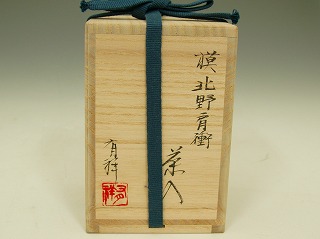 模 北野肩衝
茶入
有祥